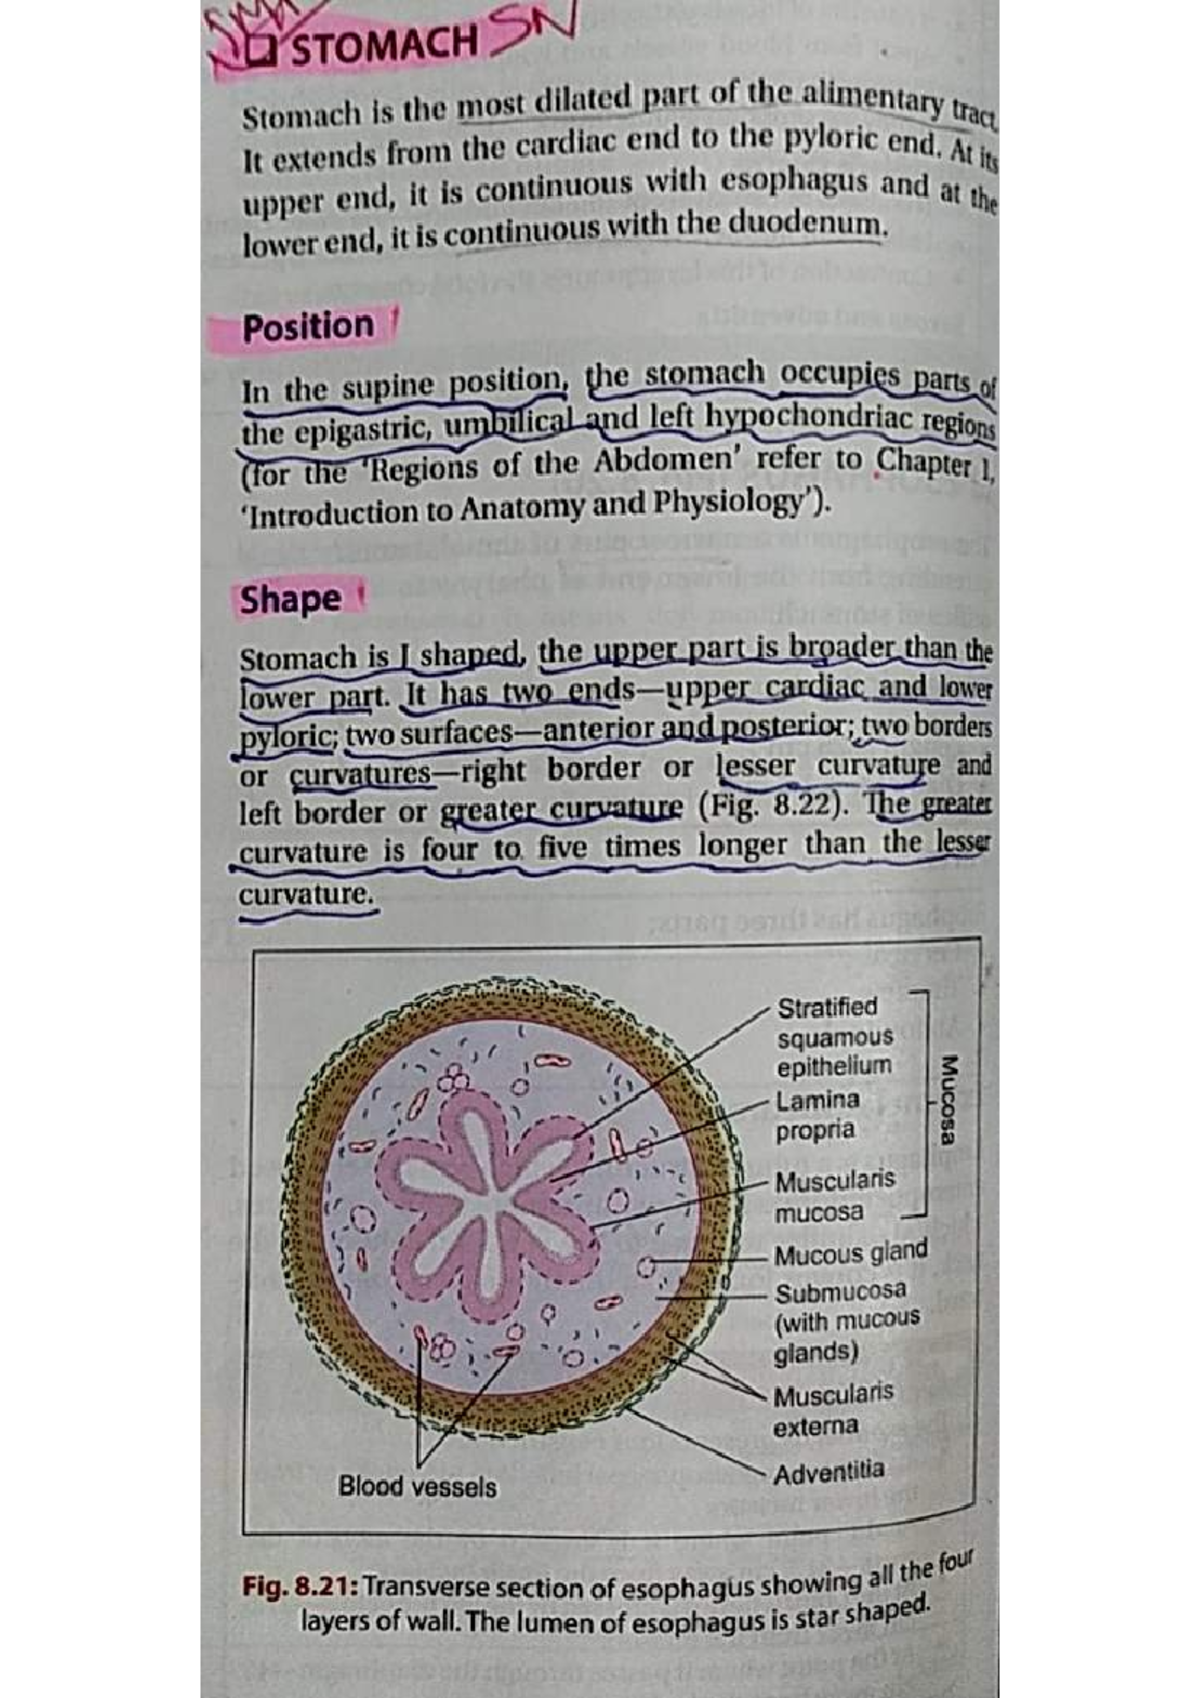 SN
STOMACH
Stomach is the most dilated part of the alimentary tract.
It extends from the cardiac end to the pyloric end. At its
upper end, it is continuous with esophagus and at the
lower end, it is continuous with the duodenum.
Position
In the supine position, the stomach occupies parts of
the epigastric, umbilical and left hypochondriac regions
(for the 'Regions of the Abdomen' refer to Chapter 1,
'Introduction to Anatomy and Physiology').
Shape
Stomach is J shaped, the upper part is broader than the
lower part. It has two ends—upper cardiac and lower
pyloric; two surfaces—anterior and posterior; two borders
or curvatures—right border or lesser curvature and
left border or greater curvature (Fig. 8.22). The greater
curvature is four to five times longer than the lesser
curvature.
Stratified
squamous
epithelium
Lamina
propria
Muscularis
mucosa
Mucosa
Mucous gland
Submucosa
(with mucous
glands)
Muscularis
externa
Adventitia
Blood vessels
Fig. 8.21: Transverse section of esophagus showing all the four
layers of wall. The lumen of esophagus is star shaped.